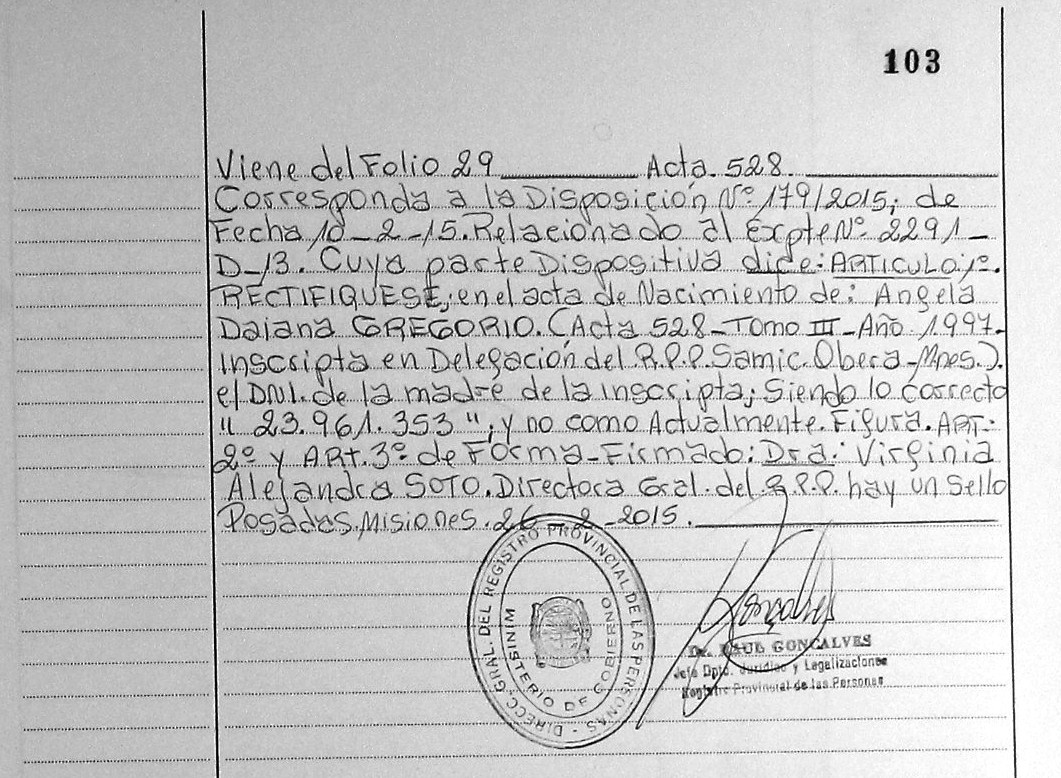 103
Viene del Folio 29 ______ Acta. 528. ______
Corresponda a la Disposición Nº 179/2015, de
Fecha 10-2-15. Relacionado al Expte Nº 2291-
D-13. Cuya parte Dispositiva dice: ARTICULO 1º.
RECTIFIQUESE, en el acta de Nacimiento de: Angela
Daiana GREGORIO. (Acta 528-Tomo III-Año 1997.
Inscripta en Delegación del R.P.P. Samic. Obera-Mnes.).
el DNI. de la madre de la inscripta; Siendo lo correcto
" 23.961.353 ", y no como Actualmente. Figura. ART.
2º y ART. 3º de Forma-Firmado: Dra. Virginia
Alejandra SOTO. Directora Gral. del R.P.P. hay un Sello
Posadas, Misiones. 26-2-2015. ______
DIRECC. GRAL. DEL REGISTRO PROVINCIAL DE LAS PERSONAS -
MINISTERIO DE GOBIERNO
Gonçalves
Dr. RAUL GONCALVES
Jefe Dpto. Juridico y Legalizaciones
Registro Provincial de las Personas